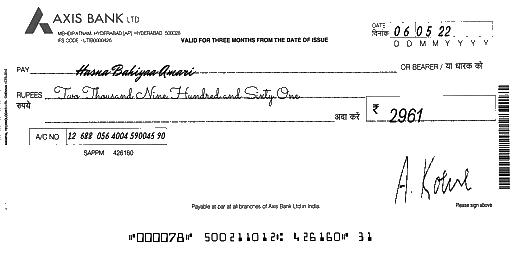 AXIS BANK LTD
MEHDIPATNAM, HYDERABAD [AP] HYDERABAD 500028
IFS CODE - UTIB0000426
VALID FOR THREE MONTHS FROM THE DATE OF ISSUE
DATE
दिनांक 06 05 22
D D M M Y Y Y Y
PAY Hasna Bahiyaa Amari OR BEARER / या धारक को
RUPEES Two Thousand Nine Hundred and Sixty One
रुपये अदा करें ₹ 2961
A/C NO 12 688 056 4004 590045 90
SAPPM 426160
A. Kohve
Payable at par at all branches of Axis Bank Ltd in India.
Please sign above
⑈000078⑈ 500211012⑆ 426160⑈ 31